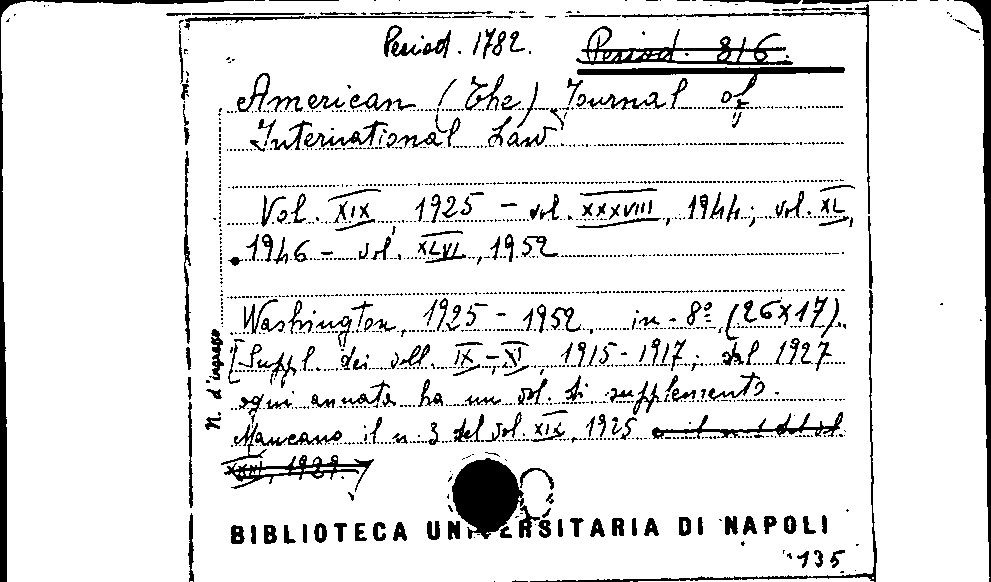 Period. 1782. Period. 816.
American (The) Journal of
International Law
Vol. XIX 1925 - vol. XXXVIII, 1944; vol. XL,
1946 - vol. XLVI, 1952
Washington, 1925 - 1952. in-8º (26x17).
[Suppl. dei voll. IX-XI, 1915-1917; dal 1927
ogni annata ha un vol. di supplemento.
Mancano il n. 3 del vol. XIX, 1925 e il n. del vol.
1929.]
N. d'ingresso
BIBLIOTECA UNIVERSITARIA DI NAPOLI
135